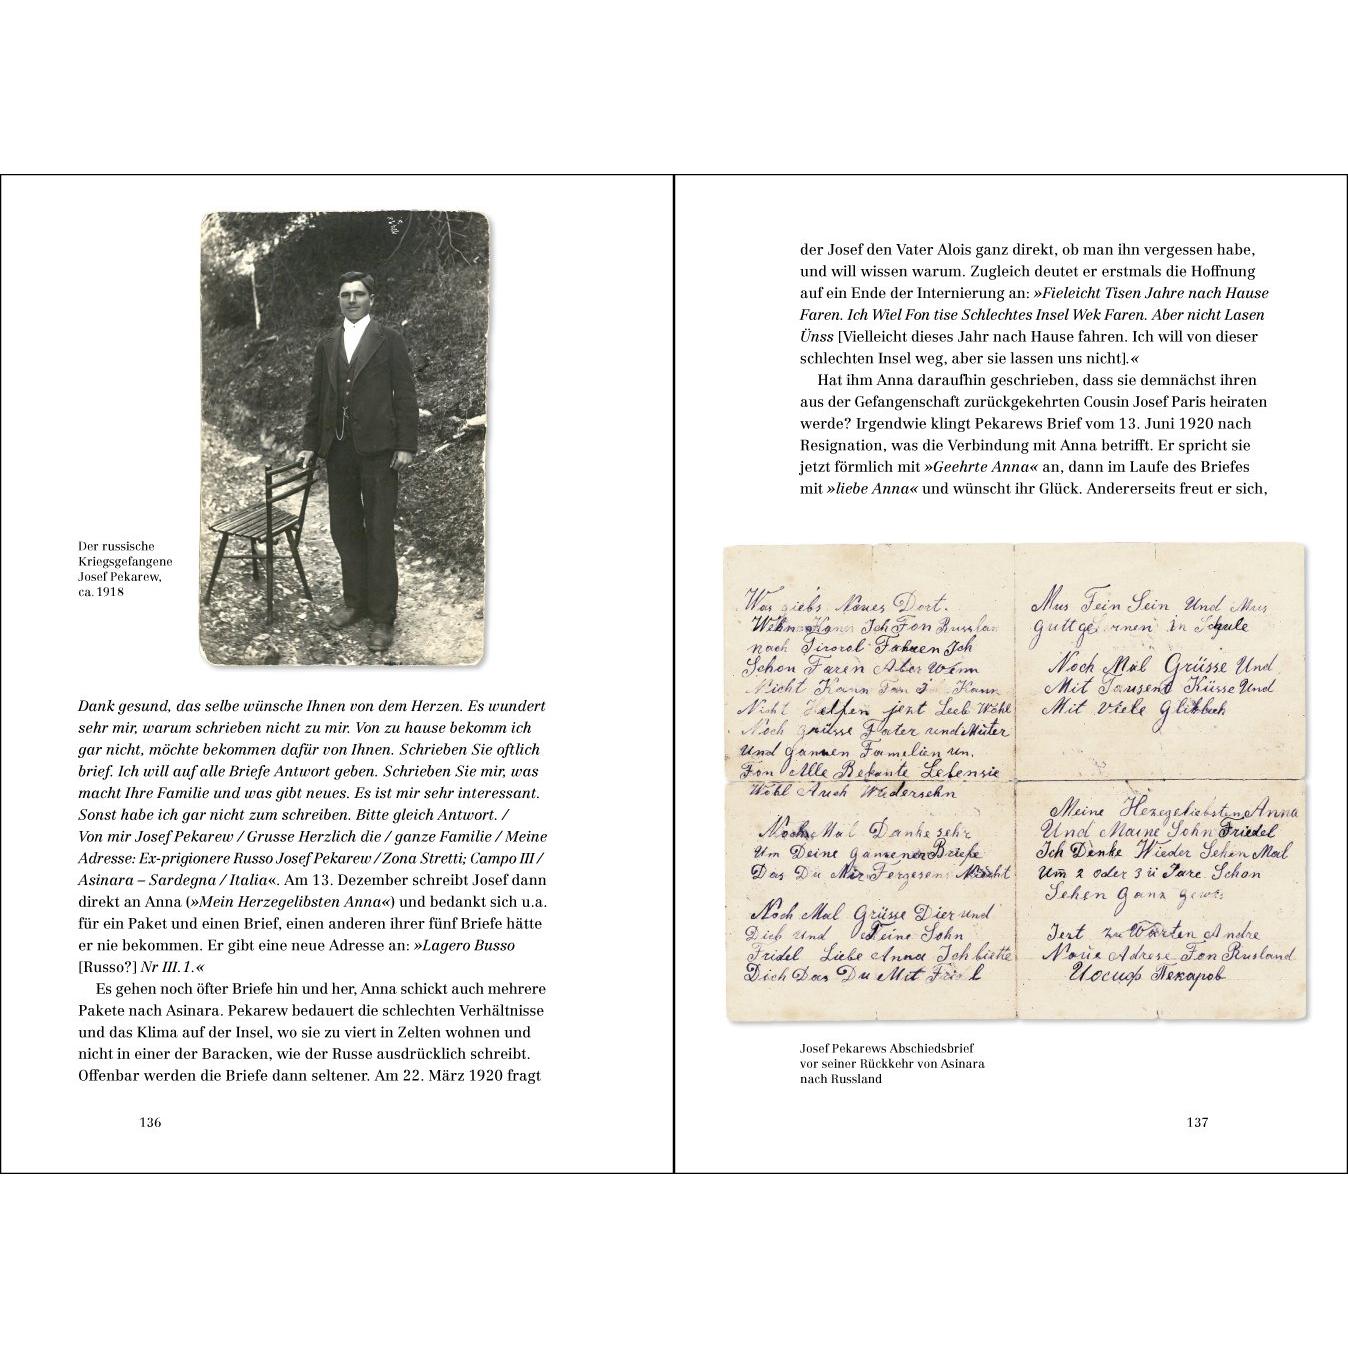 Der russische
Kriegsgefangene
Josef Pekarew,
ca. 1918
Dank gesund, das selbe wünsche Ihnen von dem Herzen. Es wundert
sehr mir, warum schrieben nicht zu mir. Von zu hause bekomm ich
gar nicht, möchte bekommen dafür von Ihnen. Schrieben Sie oftlich
brief. Ich will auf alle Briefe Antwort geben. Schrieben Sie mir, was
macht Ihre Familie und was gibt neues. Es ist mir sehr interessant.
Sonst habe ich gar nicht zum schreiben. Bitte gleich Antwort. /
Von mir Josef Pekarew / Grusse Herzlich die / ganze Familie / Meine
Adresse: Ex-prigionere Russo Josef Pekarew / Zona Stretti; Campo III /
Asinara – Sardegna / Italia«. Am 13. Dezember schreibt Josef dann
direkt an Anna (»Mein Herzegelibsten Anna«) und bedankt sich u.a.
für ein Paket und einen Brief, einen anderen ihrer fünf Briefe hätte
er nie bekommen. Er gibt eine neue Adresse an: »Lagero Busso
[Russo?] Nr III. 1.«
Es gehen noch öfter Briefe hin und her, Anna schickt auch mehrere
Pakete nach Asinara. Pekarew bedauert die schlechten Verhältnisse
und das Klima auf der Insel, wo sie zu viert in Zelten wohnen und
nicht in einer der Baracken, wie der Russe ausdrücklich schreibt.
Offenbar werden die Briefe dann seltener. Am 22. März 1920 fragt
136
der Josef den Vater Alois ganz direkt, ob man ihn vergessen habe,
und will wissen warum. Zugleich deutet er erstmals die Hoffnung
auf ein Ende der Internierung an: »Fieleicht Tisen Jahre nach Hause
Faren. Ich Wiel Fon tise Schlechtes Insel Wek Faren. Aber nicht Lasen
Ünss [Vielleicht dieses Jahr nach Hause fahren. Ich will von dieser
schlechten Insel weg, aber sie lassen uns nicht].«
Hat ihm Anna daraufhin geschrieben, dass sie demnächst ihren
aus der Gefangenschaft zurückgekehrten Cousin Josef Paris heiraten
werde? Irgendwie klingt Pekarews Brief vom 13. Juni 1920 nach
Resignation, was die Verbindung mit Anna betrifft. Er spricht sie
jetzt förmlich mit »Geehrte Anna« an, dann im Laufe des Briefes
mit »liebe Anna« und wünscht ihr Glück. Andererseits freut er sich,
Was giebs Naues Dort.
Ich Fon Russlan
nach Tirorol Fahren Ich
Schon Faren Aber Wenn
Nicht Kann Kann
Nicht Helfen jezt Leeb Wohl
Noch grüsse Fater und Muter
Und ganzen Familien un.
Fon Alle Bekante Lebensie
Wohl Auch Wiedersehn
Noch Mal Danke sehr
Um Deine ganzenen Briefe
Das Du Mir Fergesens Nicht
Noch Mal Grüsse Dier und
Dich und Deine Sohn
Fridel Liebe Anna Ich biette
Dich Das Du Mit
Mus Fein Sein Und Mus
gutt in Schule
Noch Mal Grüsse Und
Mit Tausent Küsse Und
Mit viele
Meine Herzegeliebsten Anna
Und Maine Sohn Friedel
Ich Denke Wieder Sehen Mal
Um 2 oder 3 ü Jare Schon
Sehen Ganz
Jezt zu Warten Andre
Noue Adrese Fon Rusland
Иосиф Пекаров
Josef Pekarews Abschiedsbrief
vor seiner Rückkehr von Asinara
nach Russland
137